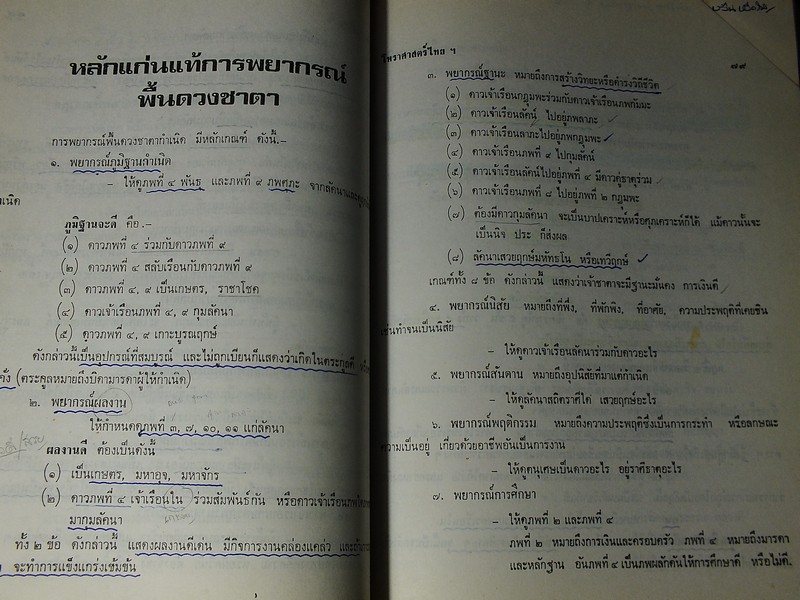 หลักแก่นแท้การพยากรณ์
พื้นดวงชาตา
การพยากรณ์พื้นดวงชาตากำเนิด มีหลักเกณฑ์ ดังนี้.-
๑. พยากรณ์ภูมิฐานกำเนิด
- ให้ดูภพที่ ๔ พันธุ และภพที่ ๙ ภพศุภะ จากลัคนาและ
เนิด
ภูมิฐานจะดี คือ .-
(๑) ดาวภพที่ ๔ ร่วมกับดาวภพที่ ๙
(๒) ดาวภพที่ ๔ สลับเรือนกับดาวภพที่ ๙
(๓) ดาวภพที่ ๔, ๙ เป็นเกษตร, ราชาโชค
(๔) ดาวเจ้าเรือนภพที่ ๔, ๙ กุมลัคนา
(๕) ดาวภพที่ ๔, ๙ เกาะบูรณฤกษ์
ดังกล่าวนี้เป็นอุปกรณ์ที่สมบูรณ์ และไม่ถูกเบียนก็แสดงว่าเกิดในตระกูลดี
คั่ง (ตระคูลหมายถึงบิดามารดาผู้ให้กำเนิด)
๒. พยากรณ์ผลงาน
ให้กำหนดดูภพที่ ๓, ๗, ๑๐, ๑๑ แก่ลัคนา
ผลงานดี ต้องเป็นดังนี้
(๑) เป็นเกษตร, มหาอุจ, มหาจักร
(๒) ดาวภพที่ ๔ เจ้าเรือนใน ร่วมสัมพันธ์กัน หรือดาวเจ้าเรือน
มากุมลัคนา
ทั้ง ๒ ข้อ ดังกล่าวนี้ แสดงผลงานดีเด่น มีกิจการงานคล่องแคล่ว และ
จะทำการแข็งแกร่งเข้มข้น
โหราศาสตร์ไทย ฯ
๘๙
๓. พยากรณ์ฐานะ หมายถึงการสร้างวิทยะหรือดำรงวิถีชีวิต
(๑) ดาวเจ้าเรือนกฎุมพะร่วมกับดาวเจ้าเรือนภพกัมมะ
(๒) ดาวเจ้าเรือนลัคน์ ไปอยู่ภพลาภะ
(๓) ดาวเจ้าเรือนลาภะไปอยู่ภพกฎุมพะ
(๔) ดาวเจ้าเรือนภพที่ ๙ ไปกุมลัคน์
(๕) ดาวเจ้าเรือนลัคน์ไปอยู่ภพที่ ๔ มีดาวคู่ธาตุร่วม
(๖) ดาวเจ้าเรือนภพที่ ๘ ไปอยู่ภพที่ ๒ กฎุมพะ
(๗) ต้องมีดาวกุมลัคนา จะเป็นบาปเคราะห์หรือศุภเคราะห์ก็ได้ แม้ดาวนั้นจะ
เป็นนิจ ประ ก็ส่งผล
(๘) ลัคนาเสวยฤกษ์มหัทธโน หรือเทวีฤกษ์
เกณฑ์ทั้ง ๘ ข้อ ดังกล่าวนี้ แสดงว่าเจ้าชาตาจะมีฐานะมั่นคง การเงินดี
๔. พยากรณ์นิสัย หมายถึงที่พึ่ง, ที่พักพิง, ที่อาศัย, ความประพฤติที่เคยชิน
ทำจนเป็นนิสัย
- ให้ดูดาวเจ้าเรือนลัคนาร่วมกับดาวอะไร
๕. พยากรณ์สันดาน หมายถึงอุปนิสัยที่มาแต่กำเนิด
- ให้ดูลัคนาสถิตราศีใด เสวยฤกษ์อะไร
๖. พยากรณ์พฤติกรรม หมายถึงความประพฤติซึ่งเป็นการกระทำ หรือลักษณะ
ความเป็นอยู่ เกี่ยวด้วยอาชีพอันเป็นการงาน
- ให้ดูตนุเศษเป็นดาวอะไร อยู่ราศีธาตุอะไร
๗. พยากรณ์การศึกษา
- ให้ดูภพที่ ๒ และภพที่ ๔
ภพที่ ๒ หมายถึงการเงินและครอบครัว ภพที่ ๔ หมายถึงมารดา
และหลักฐาน อันภพที่ ๔ เป็นภพผลักดันให้การศึกษาดี หรือไม่ดี.